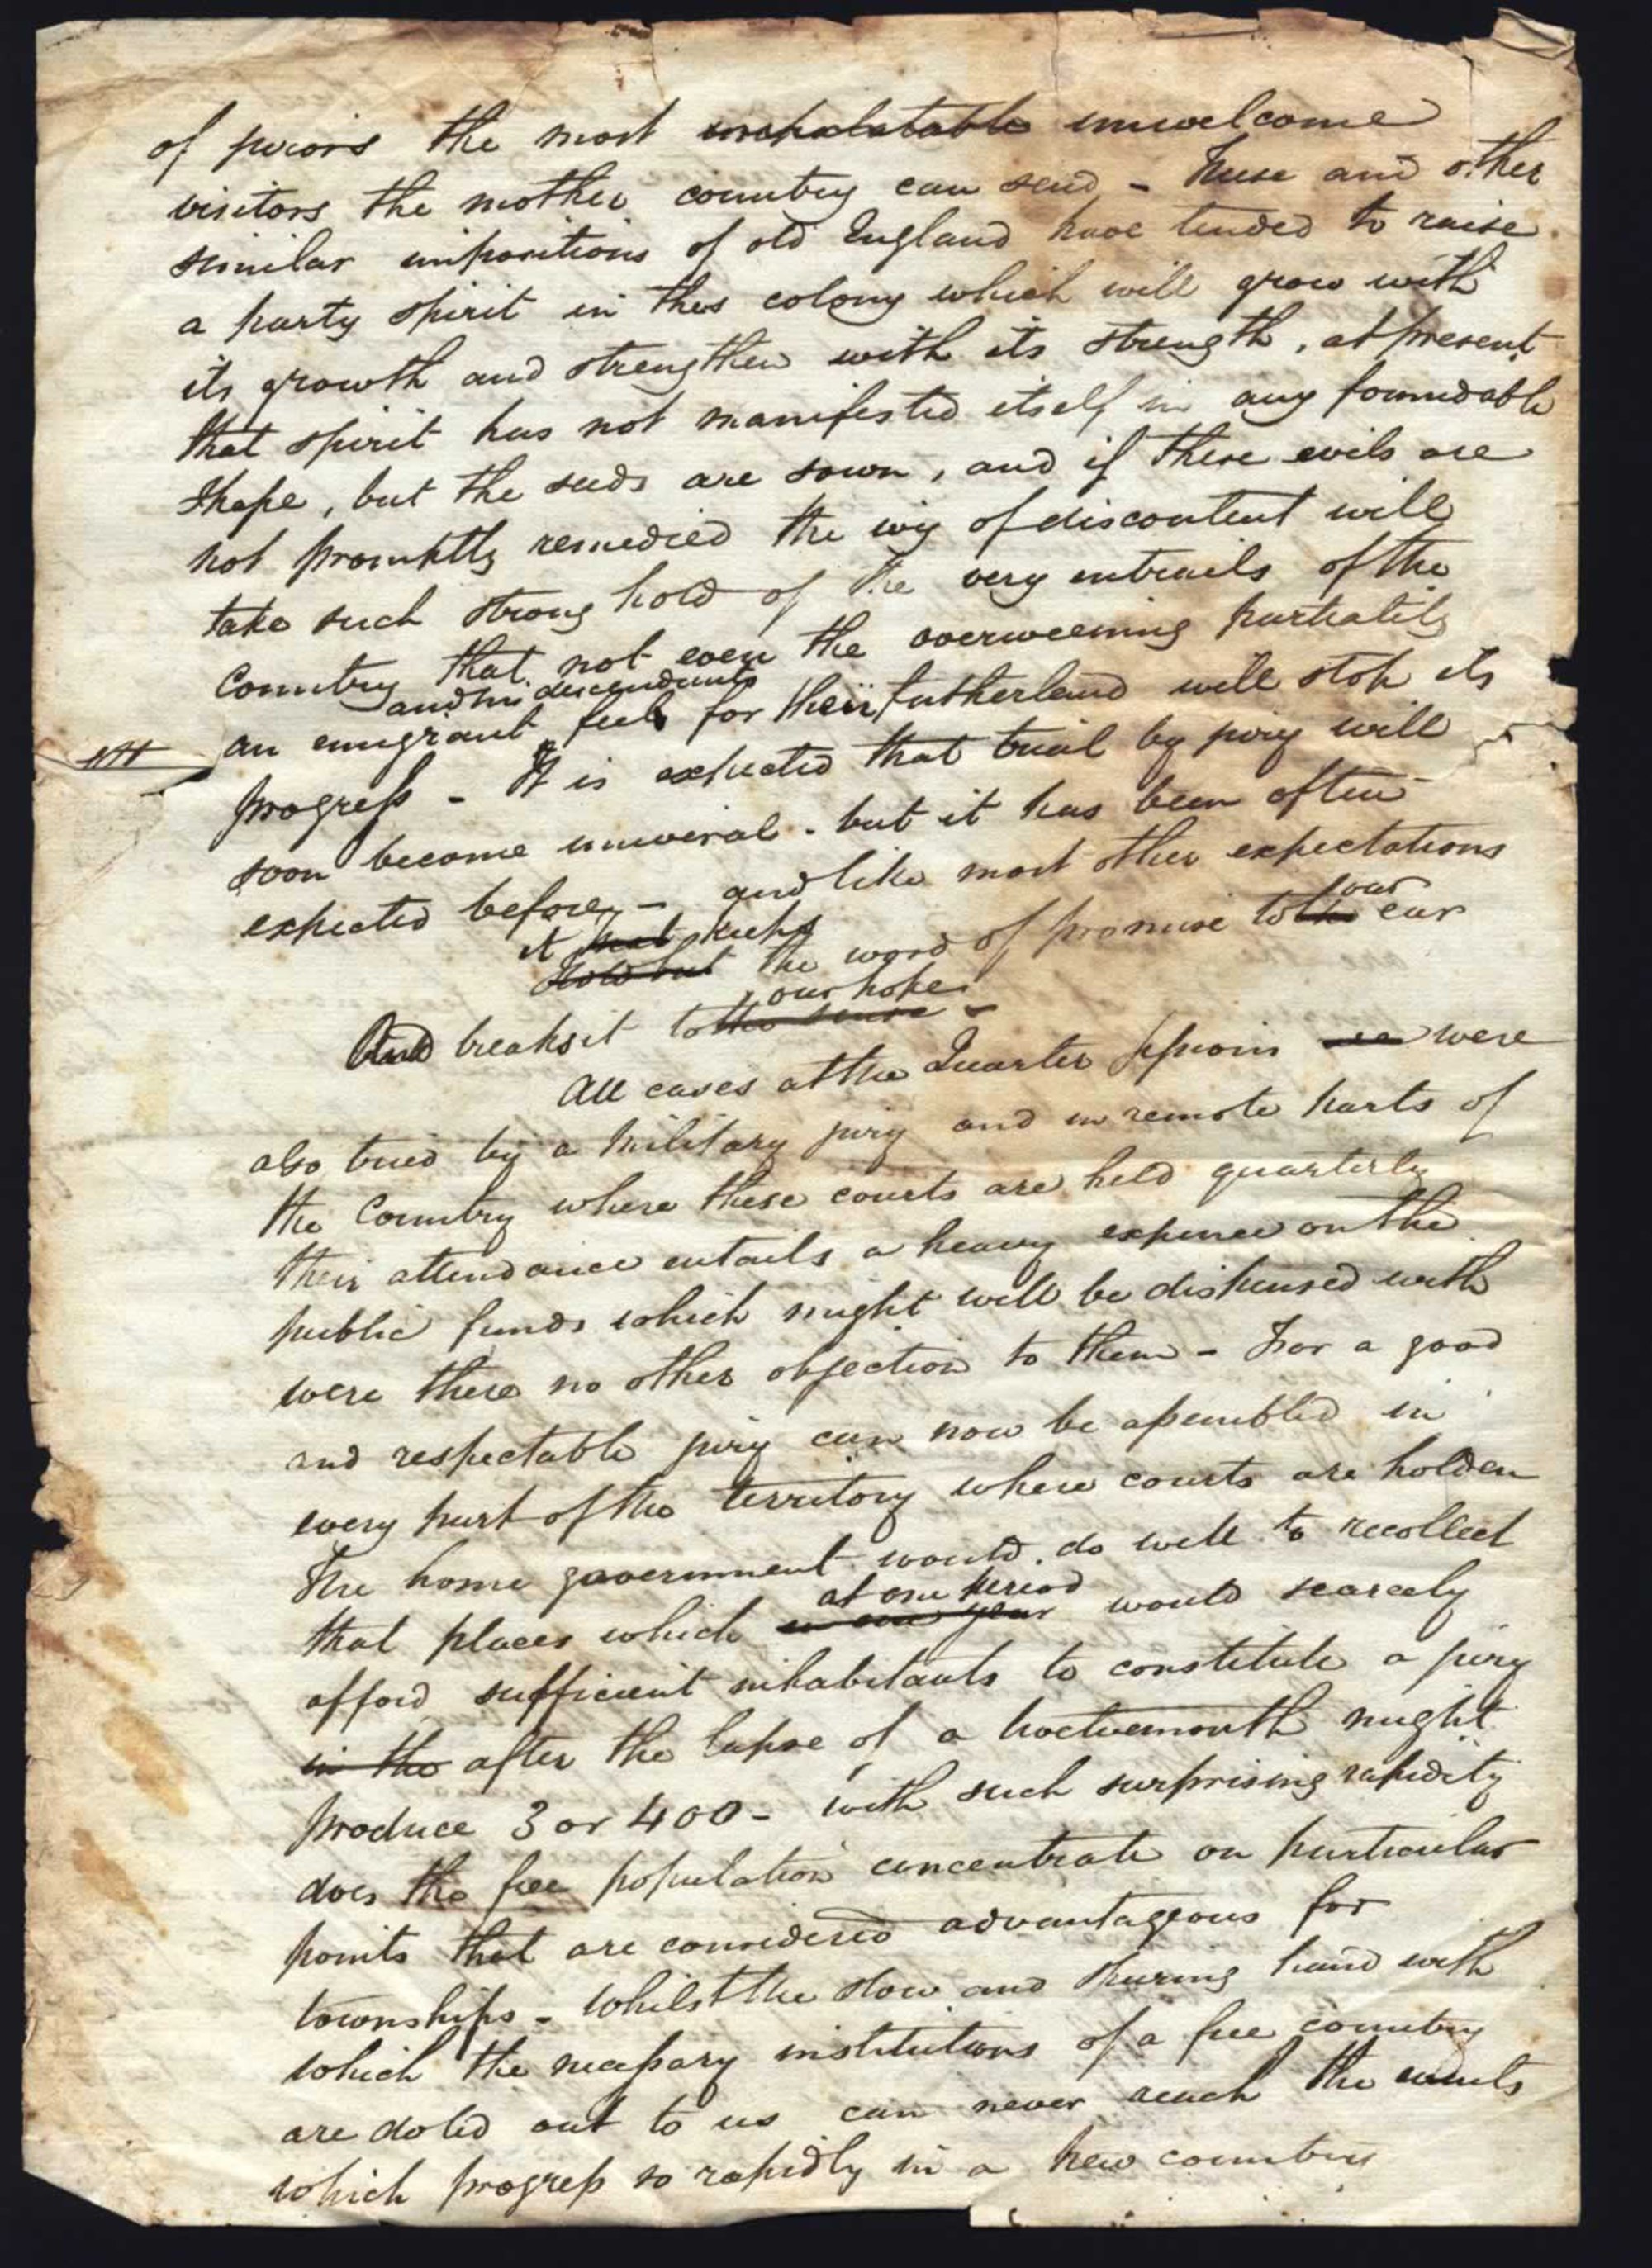 of jurors the most unpalatable unwelcome
visitors the mother country can send – These and other
similar impositions of old England have tended to raise
a party spirit in this colony which will grow with
its growth and strengthen with its strength, at present
that spirit has not manifested itself in any formidable
shape, but the seeds are sown, and if these evils are
not promptly remedied the ivy of discontent will
take such strong hold of the very entrails of the
Country that not even the overweening partiality
and his descendants
an emigrant feels for their fatherland will stop its
progress – It is expected that trial by jury will
soon become universal – but it has been often
expected before, – and like most other expectations
it keeps our
the word of promise to the ear
our hope
And breaks it to the sense –
All cases at the Quarter Sessions were
also tried by a Military jury and in remote parts of
the Country where these courts are held quarterly
their attendance entails a heavy expence on the
public funds which might well be dispensed with
were there no other objection to them – For a good
and respectable jury can now be assembled in
every part of the territory where courts are holden
The home government would do well to recollect
at one period
that places which in one year would scarcely
afford sufficient inhabitants to constitute a jury
in the after the lapse of a twelvemonth might
produce 3 or 400 – with such surprising rapidity
does the free population concentrate on particular
points that are considered advantageous for
townships – whilst the slow and sparing hand with
which the necessary institutions of a free country
are doled out to us can never reach the wants
which progress so rapidly in a new country